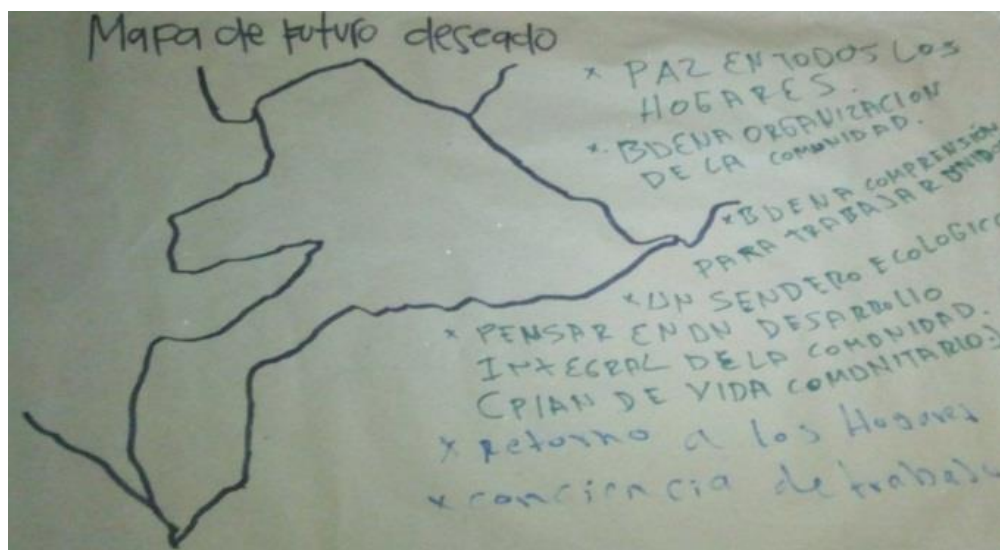 Mapa de futuro deseado
* PAZ EN TODOS LOS
HOGARES.
* BUENA ORGANIZACION
DE LA COMUNIDAD.
* BUENA COMPRENSIÓN
PARA TRABAJAR UNIDOS
* UN SENDERO ECOLOGICO
* PENSAR EN UN DESARROLLO
INTEGRAL DE LA COMUNIDAD.
(PLAN DE VIDA COMUNITARIO)
* retorno a los Hogares
* conciencia de trabajo